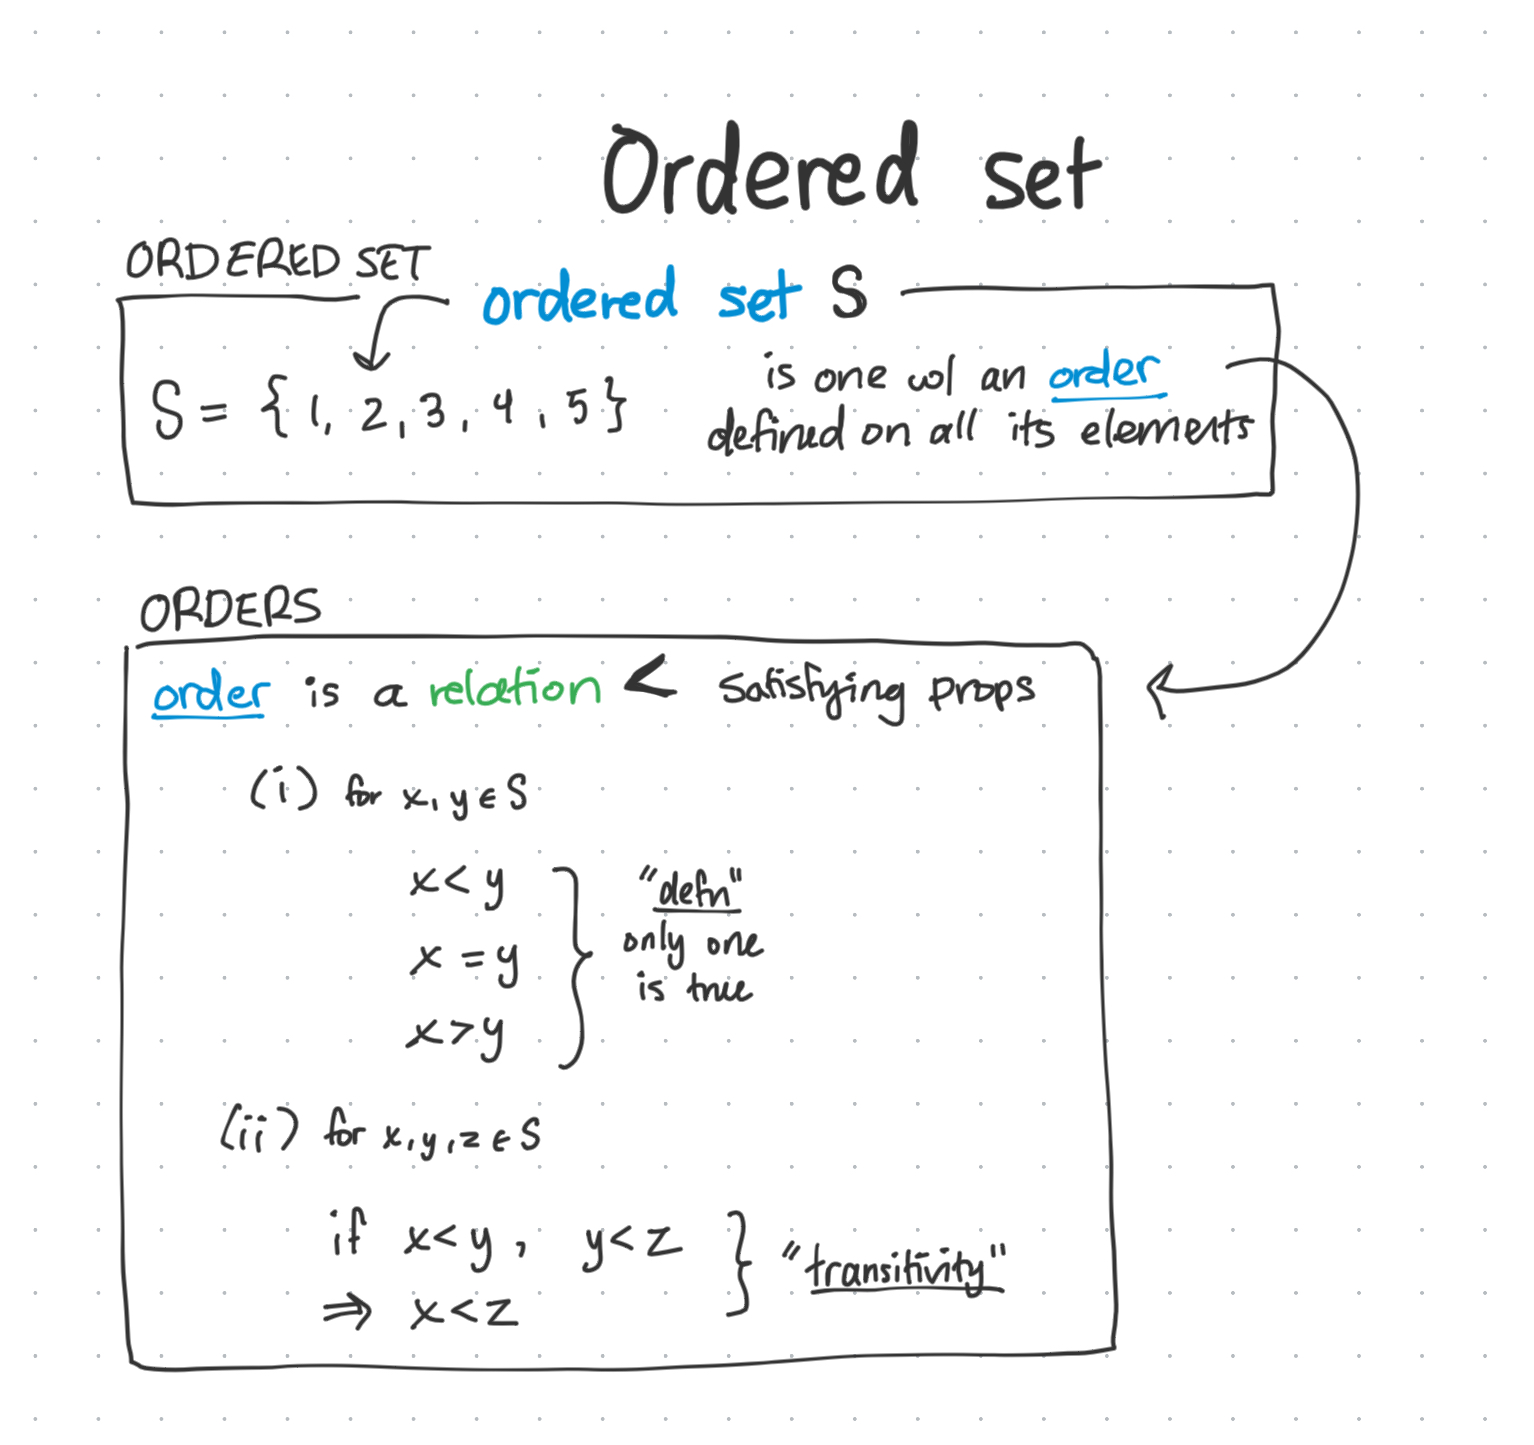 Ordered set
ORDERED SET
ordered set S
S = { 1, 2, 3, 4, 5 }
is one w/ an order
defined on all its elements
ORDERS
order is a relation < satisfying props
(i) for x, y ∈ S
x < y
x = y
x > y
"defn"
only one
is true
(ii) for x, y, z ∈ S
if x < y, y < z
⇒ x < z
"transitivity"